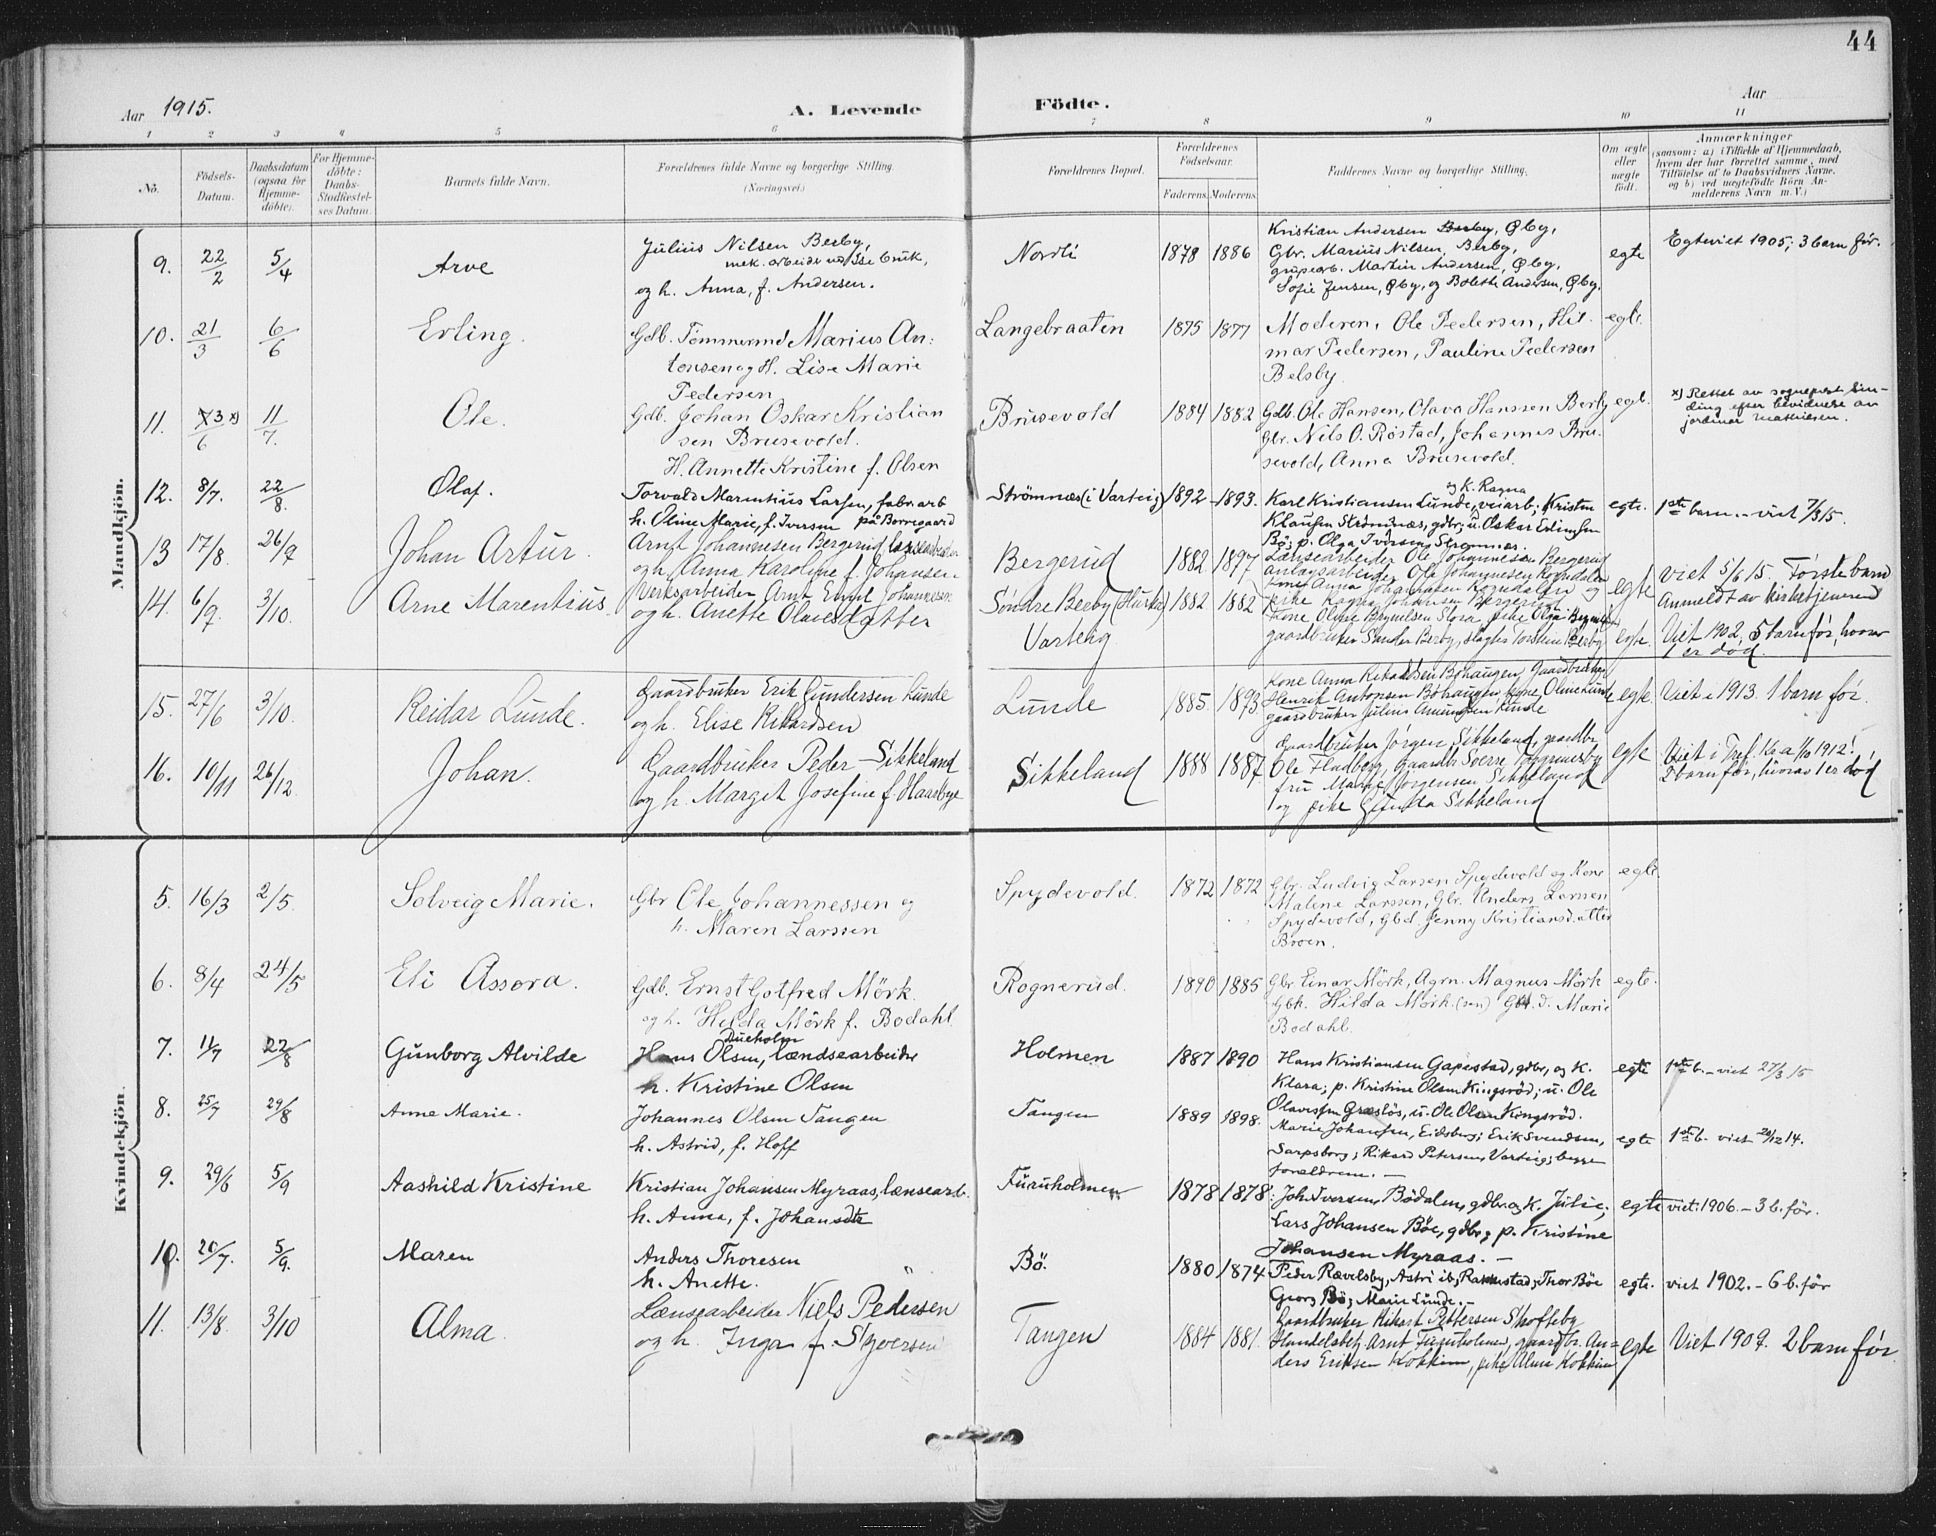 44
Aar 1915. A. Levende Födte. Aar
1 2 3 4 5 6 7 8 9 10 11
No. Födsels-Datum. Daabsdatum (ogsaa for Hjemme-döbte). For Hjemme-döbte: Daabs-Stadfæstel-ses Datum. Barnets fulde Navn. Forældrenes fulde Navne og borgerlige Stilling. (Næringsvei.) Forældrenes Bopæl. Forældrenes Födselsaar. Faderens. Moderens. Faddernes Navne og borgerlige Stilling. Om ægte eller uægte født. Anmærkninger (saasom: a) i Tilfælde af Hjemmedaab, hvem der har forrettet samme, med Tilföielse af to Daabsvidners Navne, og b) ved uægtefödte Börn An-melderens Navn m. V.)
Mandkjön.
9. 22/2 5/4 Arve Julius Nilsen Berby, mek. arbeider ved
og h. Anna, f. Andersen. Nordli 1878 1886 Kristian Andersen Berby, Øby,
Gbr. Marius Nilsen, Berby,
Martin Andersen, Øby,
Sofie Jensen, Øby, og Bolette Andersen, Øby. egte Egteviet 1905; 3 barn før.
10. 21/3 6/6 Erling. Gdb. Tömmermd Marius An-
tonsen og H. Lise Marie
Pedersen Langebraaten 1875 1877 Moderen, Ole Pedersen, Hil-
mar Pedersen, Pauline Pedersen
Belsby. egte.
11. 3 x)/6 11/7. Ole. Gdb. Johan Oskar Kristian
sen Brusevold.
H. Annette Kristine f. Olsen Brusevold 1884 1882 Gdb. Ole Hansen, Olava Hanssen Berby
Gbr. Nils O. Röstad, Johannes Bru-
sevold, Anna Brusevold. egt. x) Rettet av sogneprest Sin-
ding efter bevidnelse av
jordmor Mathiesen.
12. 8/7. 22/8. Olaf. Torvald Marentius Larsen, fabr. arb
h. Oline Marie, f. Iversen på Borregaard Strömnæs (i Varteig) 1892 1893. Karl Kristiansen Lunde, og k. Ragna veiarb; Kristen
Klausen Strömnæs, gdbr; u. Oskar
Bö; p. Olga Iversen, Strömnæs. egte. 1ste barn. - viet 7/3 15.
13 17/8. 26/9 Johan Artur. Arnt Johannesen Bergerud
og h. Anna Karoline f. Johansen. Bergerud 1882 1897 Lænsearbeider Ole Johannesen Bergerud
anlagsarbeider Ole Johannesen
kone Anna Johannesen og
pike Ragna Johansen Bergerud egte viet 5/6 15 Förste barn
Anmeldt av kirketjeneren
14. 6/9. 3/10. Arne Marentius Verksarbeider Arnt Emil Johannesen
og h. Anette Olavesdatter Søndre Berby
Varteig 1882 1882 kone Oline
gaardbruker Sander Berby, egte. Viet 1902, 5 barn før, hvorav
1 er död.
15. 27/6 3/10. Reidar Lunde. Gaardbruker Erik Gundersen Lunde
og h. Elise Rikardsen Lunde 1885. 1893. kone Anna Rikardsen Böhaugen, Gaardbruker
Henrik Antonsen Böhaugen, kone Oline Lunde
gaardbruker Julius Amundsen Lunde egte. Viet i 1913. 1 barn før.
16. 10/11 26/12. Johan. Gaardbruker Peder Sikkeland
og h. Margit Josefine f. Haarbye Sikkeland 1888 1887 Gaardbruker Jörgen Sikkeland, gaardbr.
Ole Fladberg, Gaardbr.
fru Jörgensen Sikkeland
og pike Sikkeland egte Viet i 1912.
2 barn før, hvorav 1 er död
Kvindekjön.
5. 16/3 2/5. Solveig Marie. Gbr Ole Johannessen og
h. Maren Larssen Spydevold. 1872 1872 Gbr. Ludvig Larsen Spydevold og Kone
Malene Larssen, Gbr. Anders Larssen
Spydevold, Gbd. Jenny Kristiansdatter
Broen. egte.
6. 8/4 24/5 Eli Assora. Gdb. Ernst Gotfred Mörk.
og h. Hilda Mörk f. Bodahl Rognerud. 1890 1885 Gbr Einar Mörk, Agrn. Magnus Mörk
Gbk. Hilda Mörk (sen) Gbd. Marie
Bodahl. egte.
7. 11/7 22/8 Gunborg Alvilde Hans Olsen, lændsearbeider
h. Kristine Olsen Holmen 1887 1890 Hans Kristiansen Gapestad, gdbr, og k.
Klara; p. Kristine Olsen Kingsröd; u. Ole
Olavesen Græslös, u. Ole Olsen Kingsröd. egte 1ste b. - viet 27/3 15
8. 25/7 29/8 Anne Marie. Johannes Olsen Tangen
h. Astrid, f. Hoff Tangen 1889 1898. Marie Johansen, Eidsberg; Erik Svendsen,
Sarpsborg; Rikard Petersen, Varteig; begge
forældrene. - egte 1ste b. viet 20/12 14.
9. 29/6 5/9 Aashild Kristine Kristian Johansen Myraas, lænsearb.
h. Anna, f. Johansdtr Furuholmen 1878 1878 Joh. Iversen, Bödalen, gdbr, og k. Julie;
Lars Johansen Böe, gdbr; p. Kristine
Johansen Myraas. - egte viet: 1906. - 3 b. før.
10. 20/7. 5/9. Maren Anders Thoresen
h. Anette. Bö. 1880 1874 Peder Rævelsby, Astri ib; Thor Böe
Georg Bö; Marie Lunde. - egte. viet 1902. - 6 b. før
11. 13/8. 3/10 Alma. Lænsearbeider Niels Pedersen
og h. Inga f. Syversen Tangen 1884 1881. Gaardbruker Rikart Pettersen Skofteby
Arnt Furuholmen, gaardbr. An-
ders Eriksen Kokkim, pike Alma Kokkim egte Viet 1907. 2 barn før.